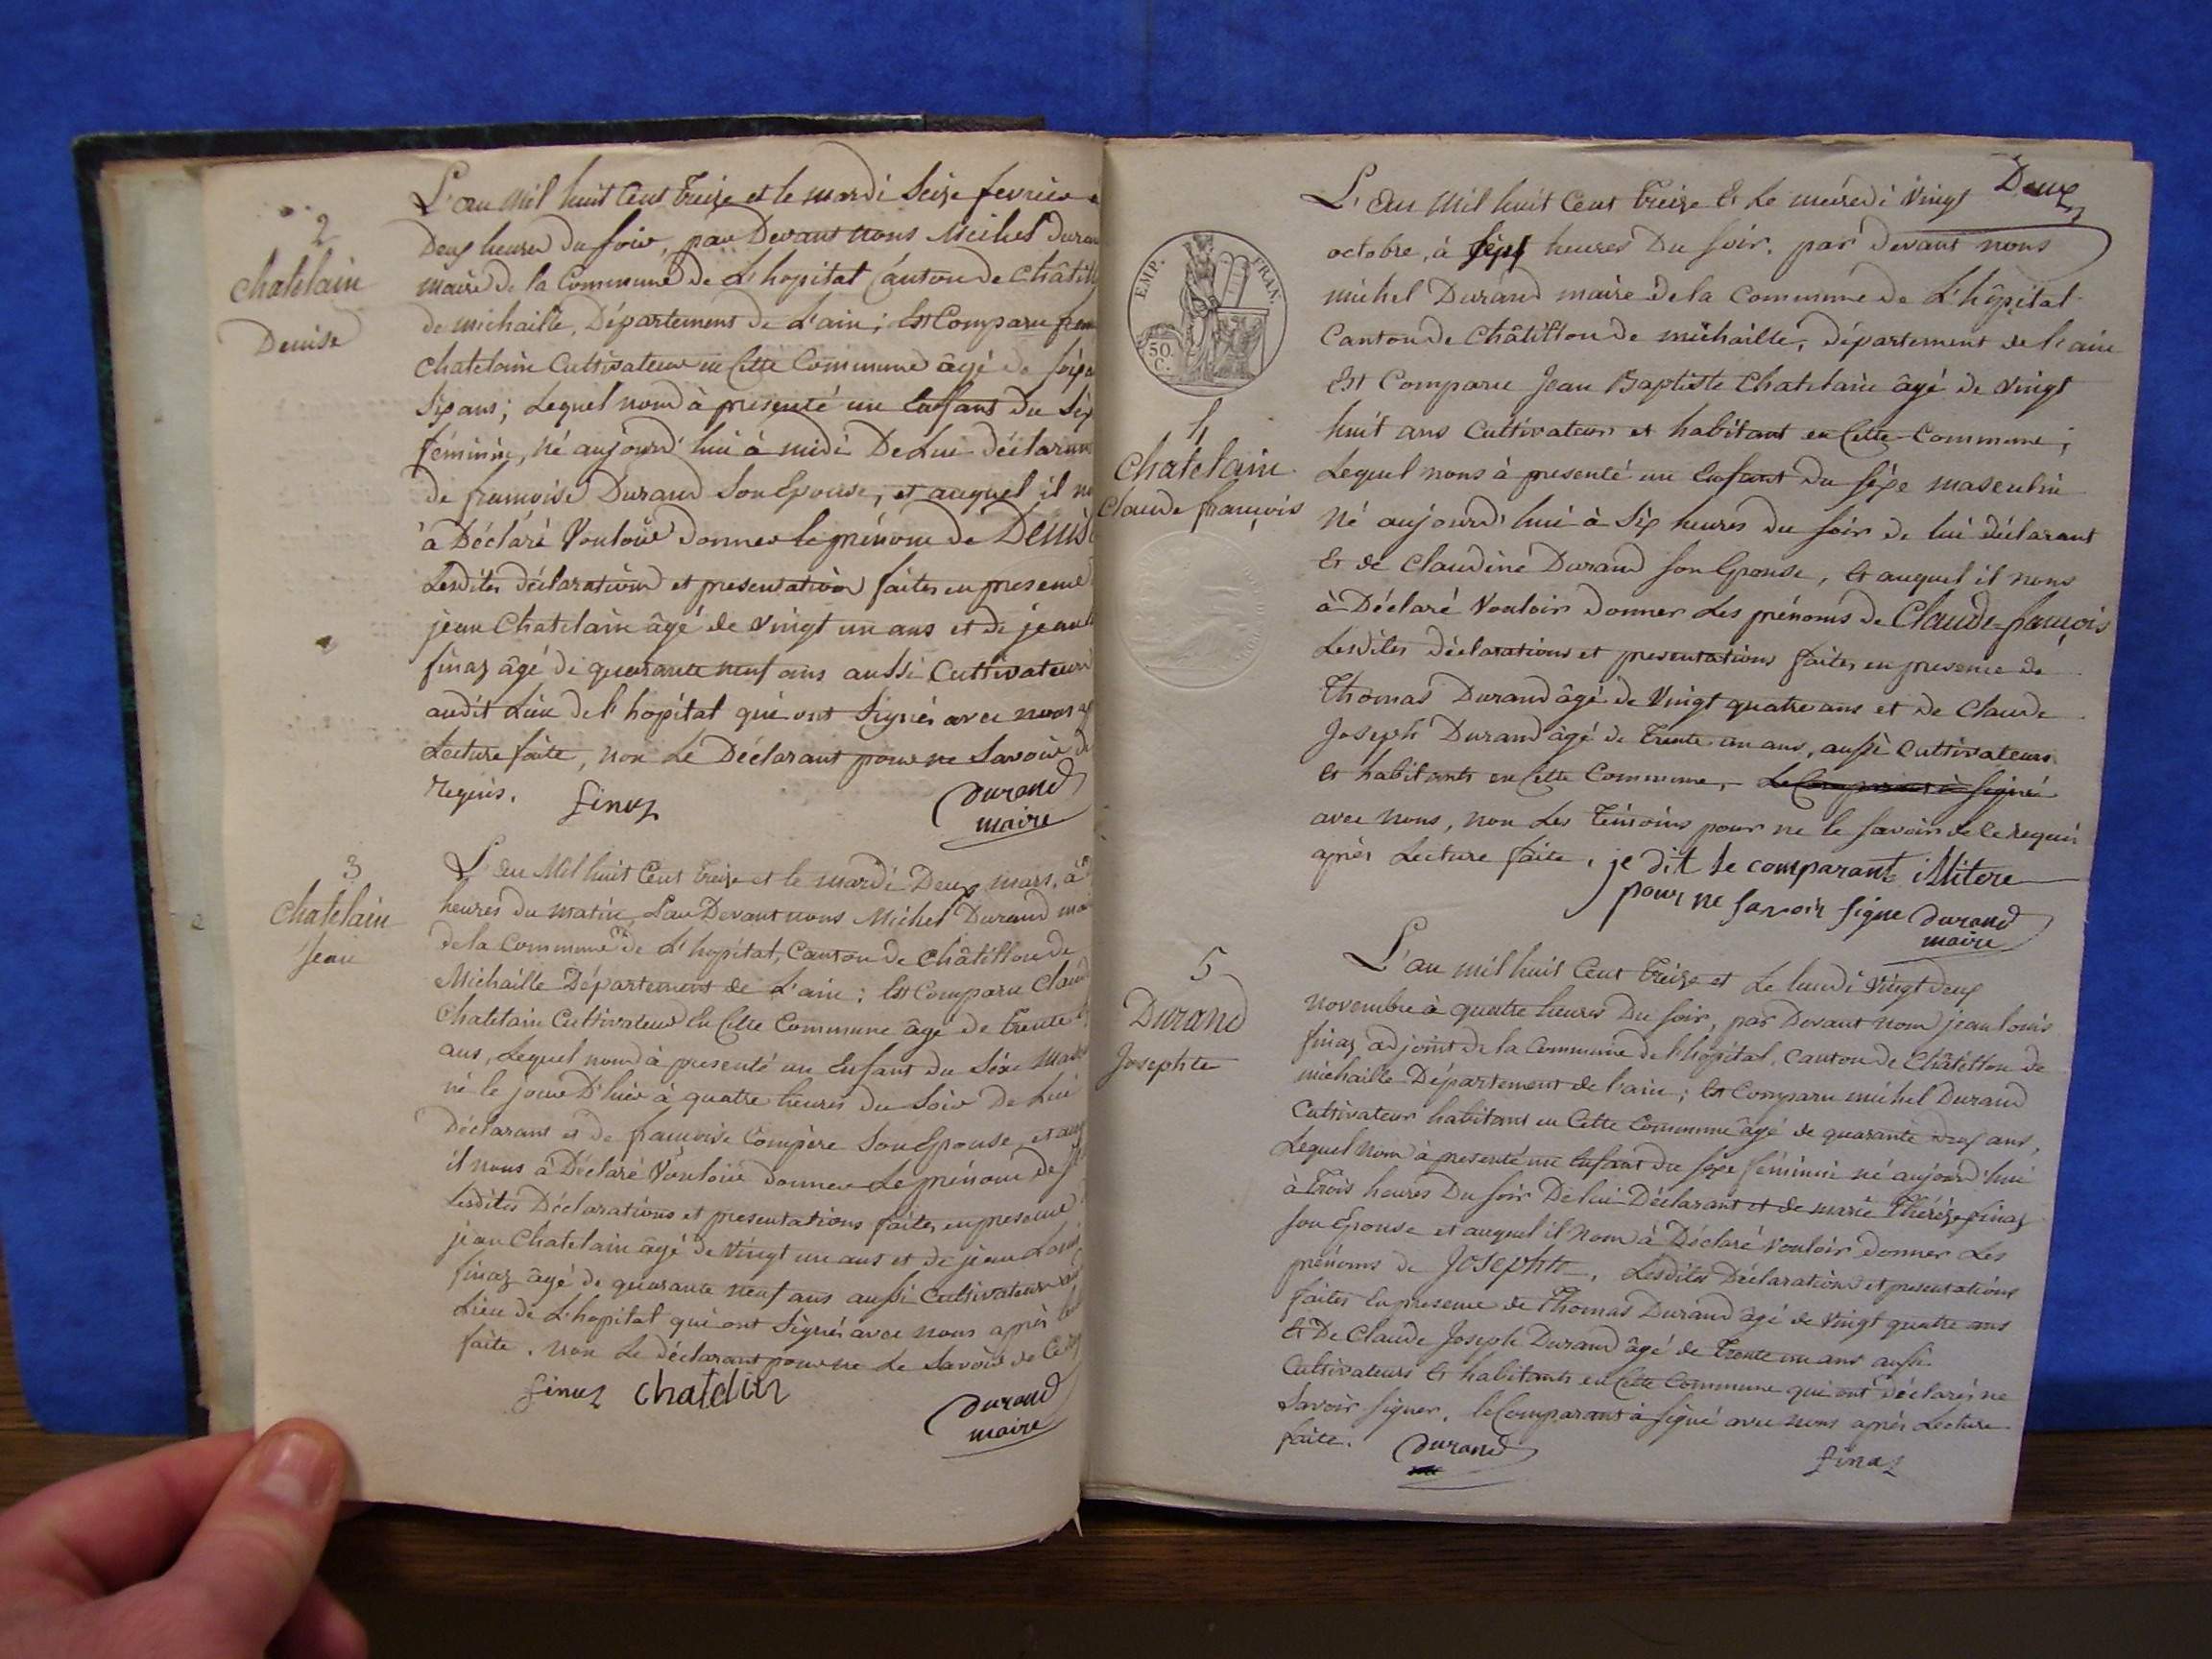 2
Chatelain
Denise
L'an Mil huit Cent treize et le mardi Seize fevrier
Deux heures du soir, par Devant nous Michel Duran
maire de la Commune de L'hopital Canton de Châtill
de michaille, Département de L'ain; Est Comparu
Chatelain Cultivateur en Cette Commune âgé de soixa
Six ans; Lequel nous à presenté un Enfant Du Séx
féminin, né aujourd'hui à midi De Lui déclarant
de françoise Durand Son Epouse, et auquel il no
à Déclaré Vouloir donner le prénom de Denise
Lesdites déclarations et presentation faites en presence
jean Chatelain âgé de vingt un ans et de jean
finaz âgé de quarante neuf ans aussi Cultivateurs
audit Lieu de l'hopital qui ont Signés avec nous
Lecture faite, non Le Déclarant pour ne Savoir de
requis.
finaz
Durand
maire
3
Chatelain
Jean
L'an Mil huit Cent treize et le mardi Deux mars, à
heures du matin, Par Devant nous Michel Durand ma
de la Commune de L'hopital, Canton de Châtillon de
Michaille Département de L'ain; Est Comparu Claud
Chatelain Cultivateur En Cette Commune âgé de trente
ans, Lequel nous à presenté un Enfant du Séxe Mas
né le jour D'hier à quatre heures du Soir De Lui
Déclarant et de françoise Compère Son Epouse, et au
il nous à Déclaré Vouloir donner Le prénom de
Lesdites Déclarations et presentations faites en presence
jean Chatelain âgé de Vingt un ans et de jean Louis
finaz âgé de quarante neuf ans aussi Cultivateurs
Lieu de L'hopital qui ont Signés avec nous après
faite, non Le déclarant pour ne Le Savoir de Ce
finaz Chatelin
Durand
maire
Deux
EMP. FRAN.
50.
C.
4
Chatelain
Claude françois
L'An Mil huit Cent treize Et Le mécredi Vingt
octobre, à sept heures Du soir, par devant nous
michel Durand maire de la Commune de L'hôpital
Canton de Châtillon de michaille, département de l'ain
Est Comparu Jean Baptiste Chatelain âgé de vingt
huit ans Cultivateur et habitant en Cette Commune;
Lequel nous à presenté un Enfant Du séxe masculin
Né aujourd'hui à Six heures du soir de lui déclarant
Et de Claudine Durand son Epouse, Et auquel il nous
à Déclaré Vouloir donner Les prénoms de Claude=françois
Lesdites déclarations et presentations faites en presence de
Thomas Durand âgé de Vingt quatre ans et de Claude
Joseph Durand âgé de trente un ans, aussi Cultivateurs
Et habitants en Cette Commune, Le Comparant à signé
avec nous, non Les témoins pour ne le savoir de ce requis
après Lecture faite, je dit le comparant illitere
pour ne savoir signe Durand
maire
5
Durand
Josephte
L'an mil huit Cent treize et Le lundi vingt deux
novembre à quatre heures Du soir, par Devant nous jean louis
finaz adjoint de la Commune de l'hôpital, Canton de Châtillon de
michaille Département de l'ain; Est Comparu michel Durand
Cultivateur habitant en Cette Commune âgé de quarante deux ans,
Lequel nous à presenté un Enfant du séxe féminin né aujourd'hui
à trois heures Du soir De lui Déclarant et de marie Thérèze finaz
son Epouse et auquel il Nous à Déclaré vouloir donner Les
prénoms de Josephte, Lesdites Déclarations et presentations
faites En presence de Thomas Durand âgé de Vingt quatre ans
Et De Claude Joseph Durand âgé de trente un ans aussi
Cultivateurs Et habitants en Cette Commune qui ont déclarés ne
Savoir signer, le Comparant à signé avec nous après Lecture
faite.
Durand
finaz